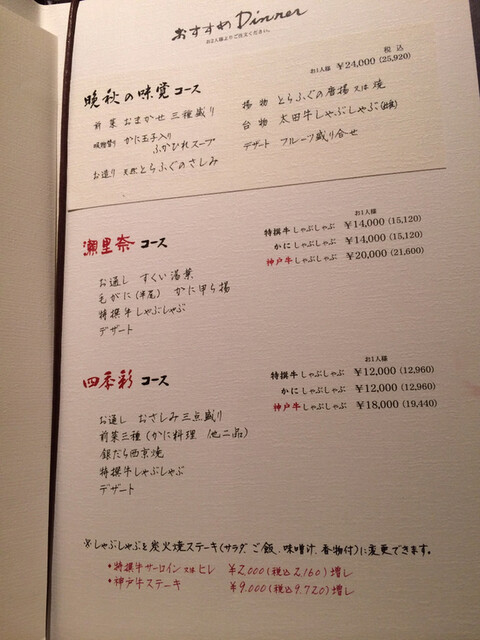 おすすめ Dinner
お2人様よりご注文ください。
税込
晩秋の味覚コース
お1人様 ¥24,000 (25,920)
前菜 おまかせ三種盛り
かに玉子入り
ふかひれスープ
お造り 天然とらふぐのさしみ
揚物 とらふぐの唐揚又は焼
台物 太田牛しゃぶしゃぶ
デザート フルーツ盛り合せ
瀬里奈 コース
お1人様
特撰牛しゃぶしゃぶ ¥14,000 (15,120)
かにしゃぶしゃぶ ¥14,000 (15,120)
神戸牛しゃぶしゃぶ ¥20,000 (21,600)
お通し すくい湯葉
毛がに(半尾) かに甲ら揚
特撰牛しゃぶしゃぶ
デザート
四季彩 コース
お1人様
特撰牛しゃぶしゃぶ ¥12,000 (12,960)
かにしゃぶしゃぶ ¥12,000 (12,960)
神戸牛しゃぶしゃぶ ¥18,000 (19,440)
お通し おさしみ三点盛り
前菜三種(かに料理 他二品)
銀だら西京焼
特撰牛しゃぶしゃぶ
デザート
※しゃぶしゃぶを炭火焼ステーキ(サラダ、ご飯、味噌汁、香物付)に変更できます。
・特撰牛サーロイン又はヒレ ¥2,000(税込2,160)増し
・神戸牛ステーキ ¥9,000(税込9,720)増し